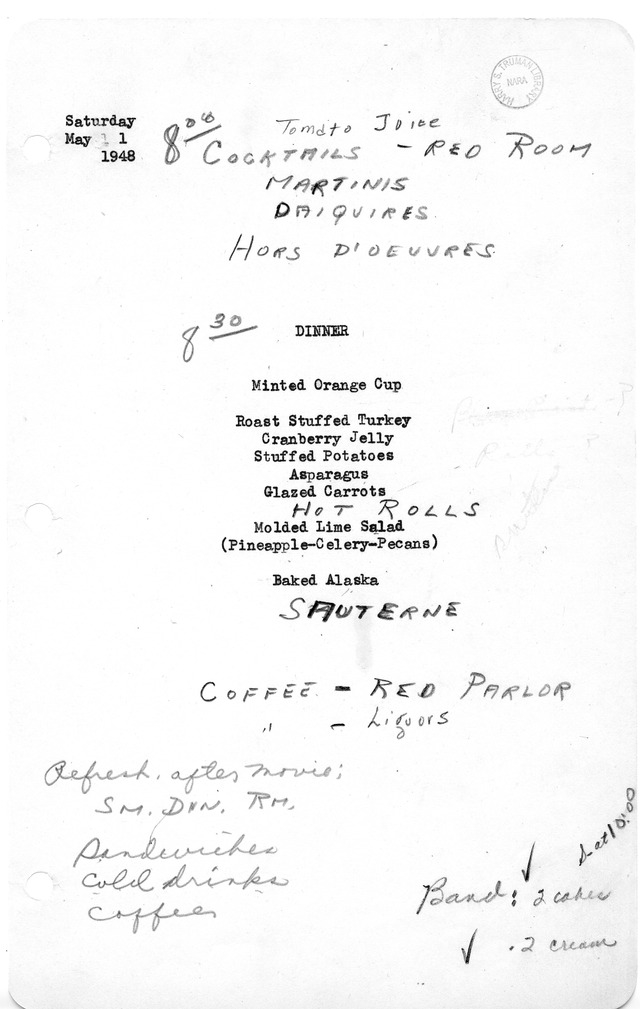 HARRY S. TRUMAN LIBRARY
NARA
Saturday
May 1
1948
8 00
Tomato Juice
COCKTAILS - RED ROOM
MARTINIS
DAIQUIRES
HORS D'OEUVRES
8 30
DINNER
Minted Orange Cup
Roast Stuffed Turkey
Cranberry Jelly
Stuffed Potatoes
Asparagus
Glazed Carrots
HOT ROLLS
Molded Lime Salad
(Pineapple-Celery-Pecans)
Baked Alaska
SAUTERNE
COFFEE - RED PARLOR
" - Liquors
Refresh. after movie;
SM. DIN. RM.
Sandwiches
Cold drinks
Coffee
at 10:00
Band: 2 cakes
2 cream